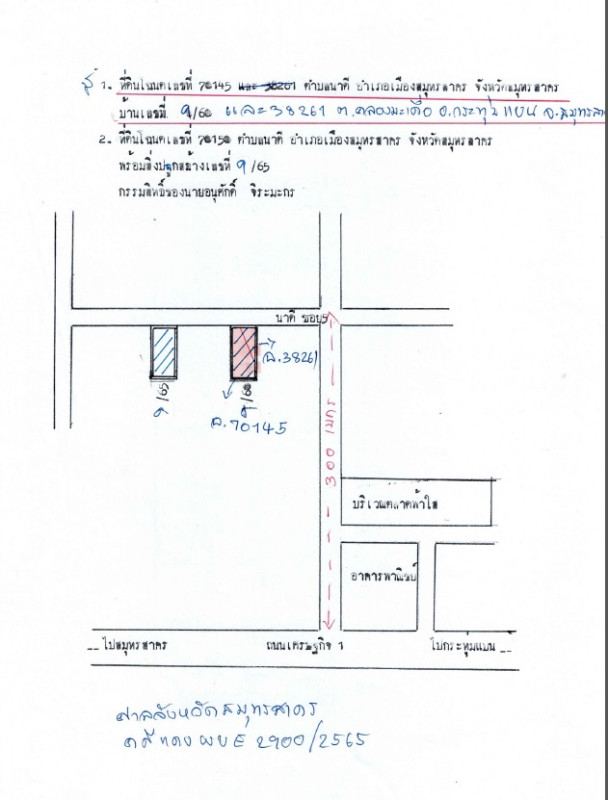 1. ที่ดินโฉนดเลขที่ 70145 และ 38261 ตำบลนาดี อำเภอเมืองสมุทรสาคร จังหวัดสมุทรสาคร
บ้านเลขที่ 9/60 และ 38261 ต.คลองมะเดื่อ อ.กระทุ่มแบน จ.สมุทรสา
2. ที่ดินโฉนดเลขที่ 70150 ตำบลนาดี อำเภอเมืองสมุทรสาคร จังหวัดสมุทรสาคร
พร้อมสิ่งปลูกสร้างเลขที่ 9/65
กรรมสิทธิ์ของนายอนุศักดิ์ จิระมะกร
นาดี ซอย5
ฉ.38261
9/65
9/60
ฉ.70145
300 เมตร
บริเวณตลาดฟ้าใส
อาคารพาณิชย์
ไปสมุทรสาคร
ถนนเศรษฐกิจ 1
ไปกระทุ่มแบน
ศาลจังหวัดสมุทรสาคร
คดีแดง ผบE 2900/2565